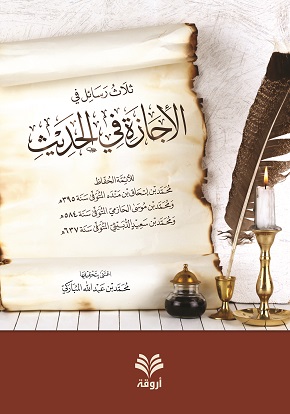 ثلاث رسائل في
الإجازة في الحديث
للأئمة الحفاظ
محمد بن إسحاق بن منده المتوفى سنة ٣٩٥هـ
ومحمد بن موسى الحازمي المتوفى سنة ٥٨٤هـ
ومحمد بن سعيد الدبيثي المتوفى سنة ٦٣٧هـ
اعتنى بتحقيقها
محمد بن عبد الله المباركي
أروقة